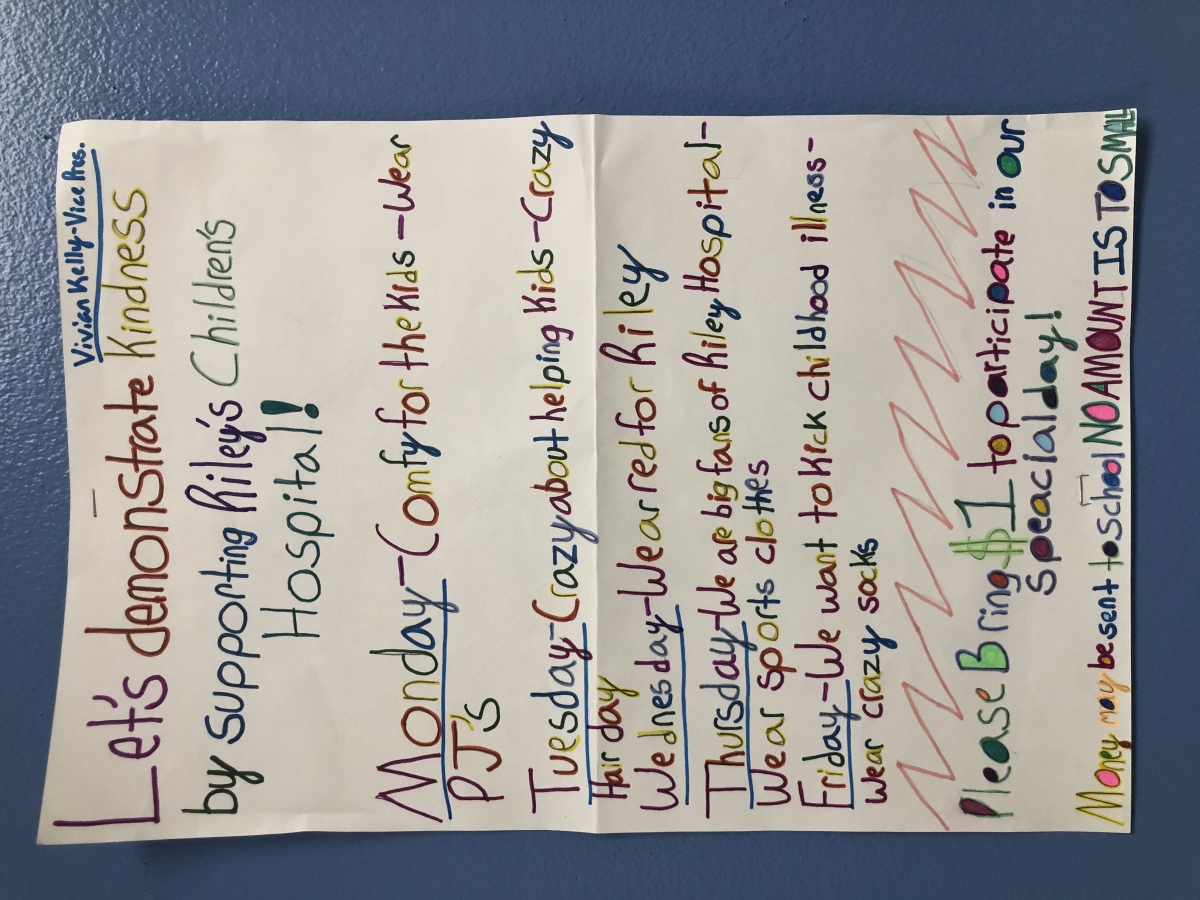 Vivian Kelly-Vice Pres.
Let's demonstrate Kindness
by supporting Riley's Children's
Hospital!
Monday-Comfy for the Kids-Wear
PJ's
Tuesday-Crazy about helping Kids-Crazy
Hair day
Wednesday-We ar red for Riley
Thursday-We are big fans of Riley Hospital-
Wear sports clothes
Friday-We want to Kick childhood illness-
wear crazy socks
Please Bring $1 to participate in our
Speacial day!
Money may be sent to school NO AMOUNT IS TO SMALL